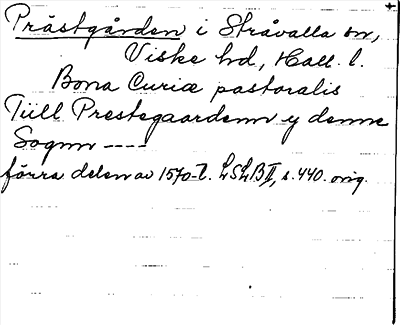 Prästgården i Stråvalla sn,
Viske hd, Hall. l.
Bona Curiæ pastoralis
Tiill Prestegaardenn y denne
Sognn ----
förra delen av 1570-t. LSLB II, s. 440. orig.